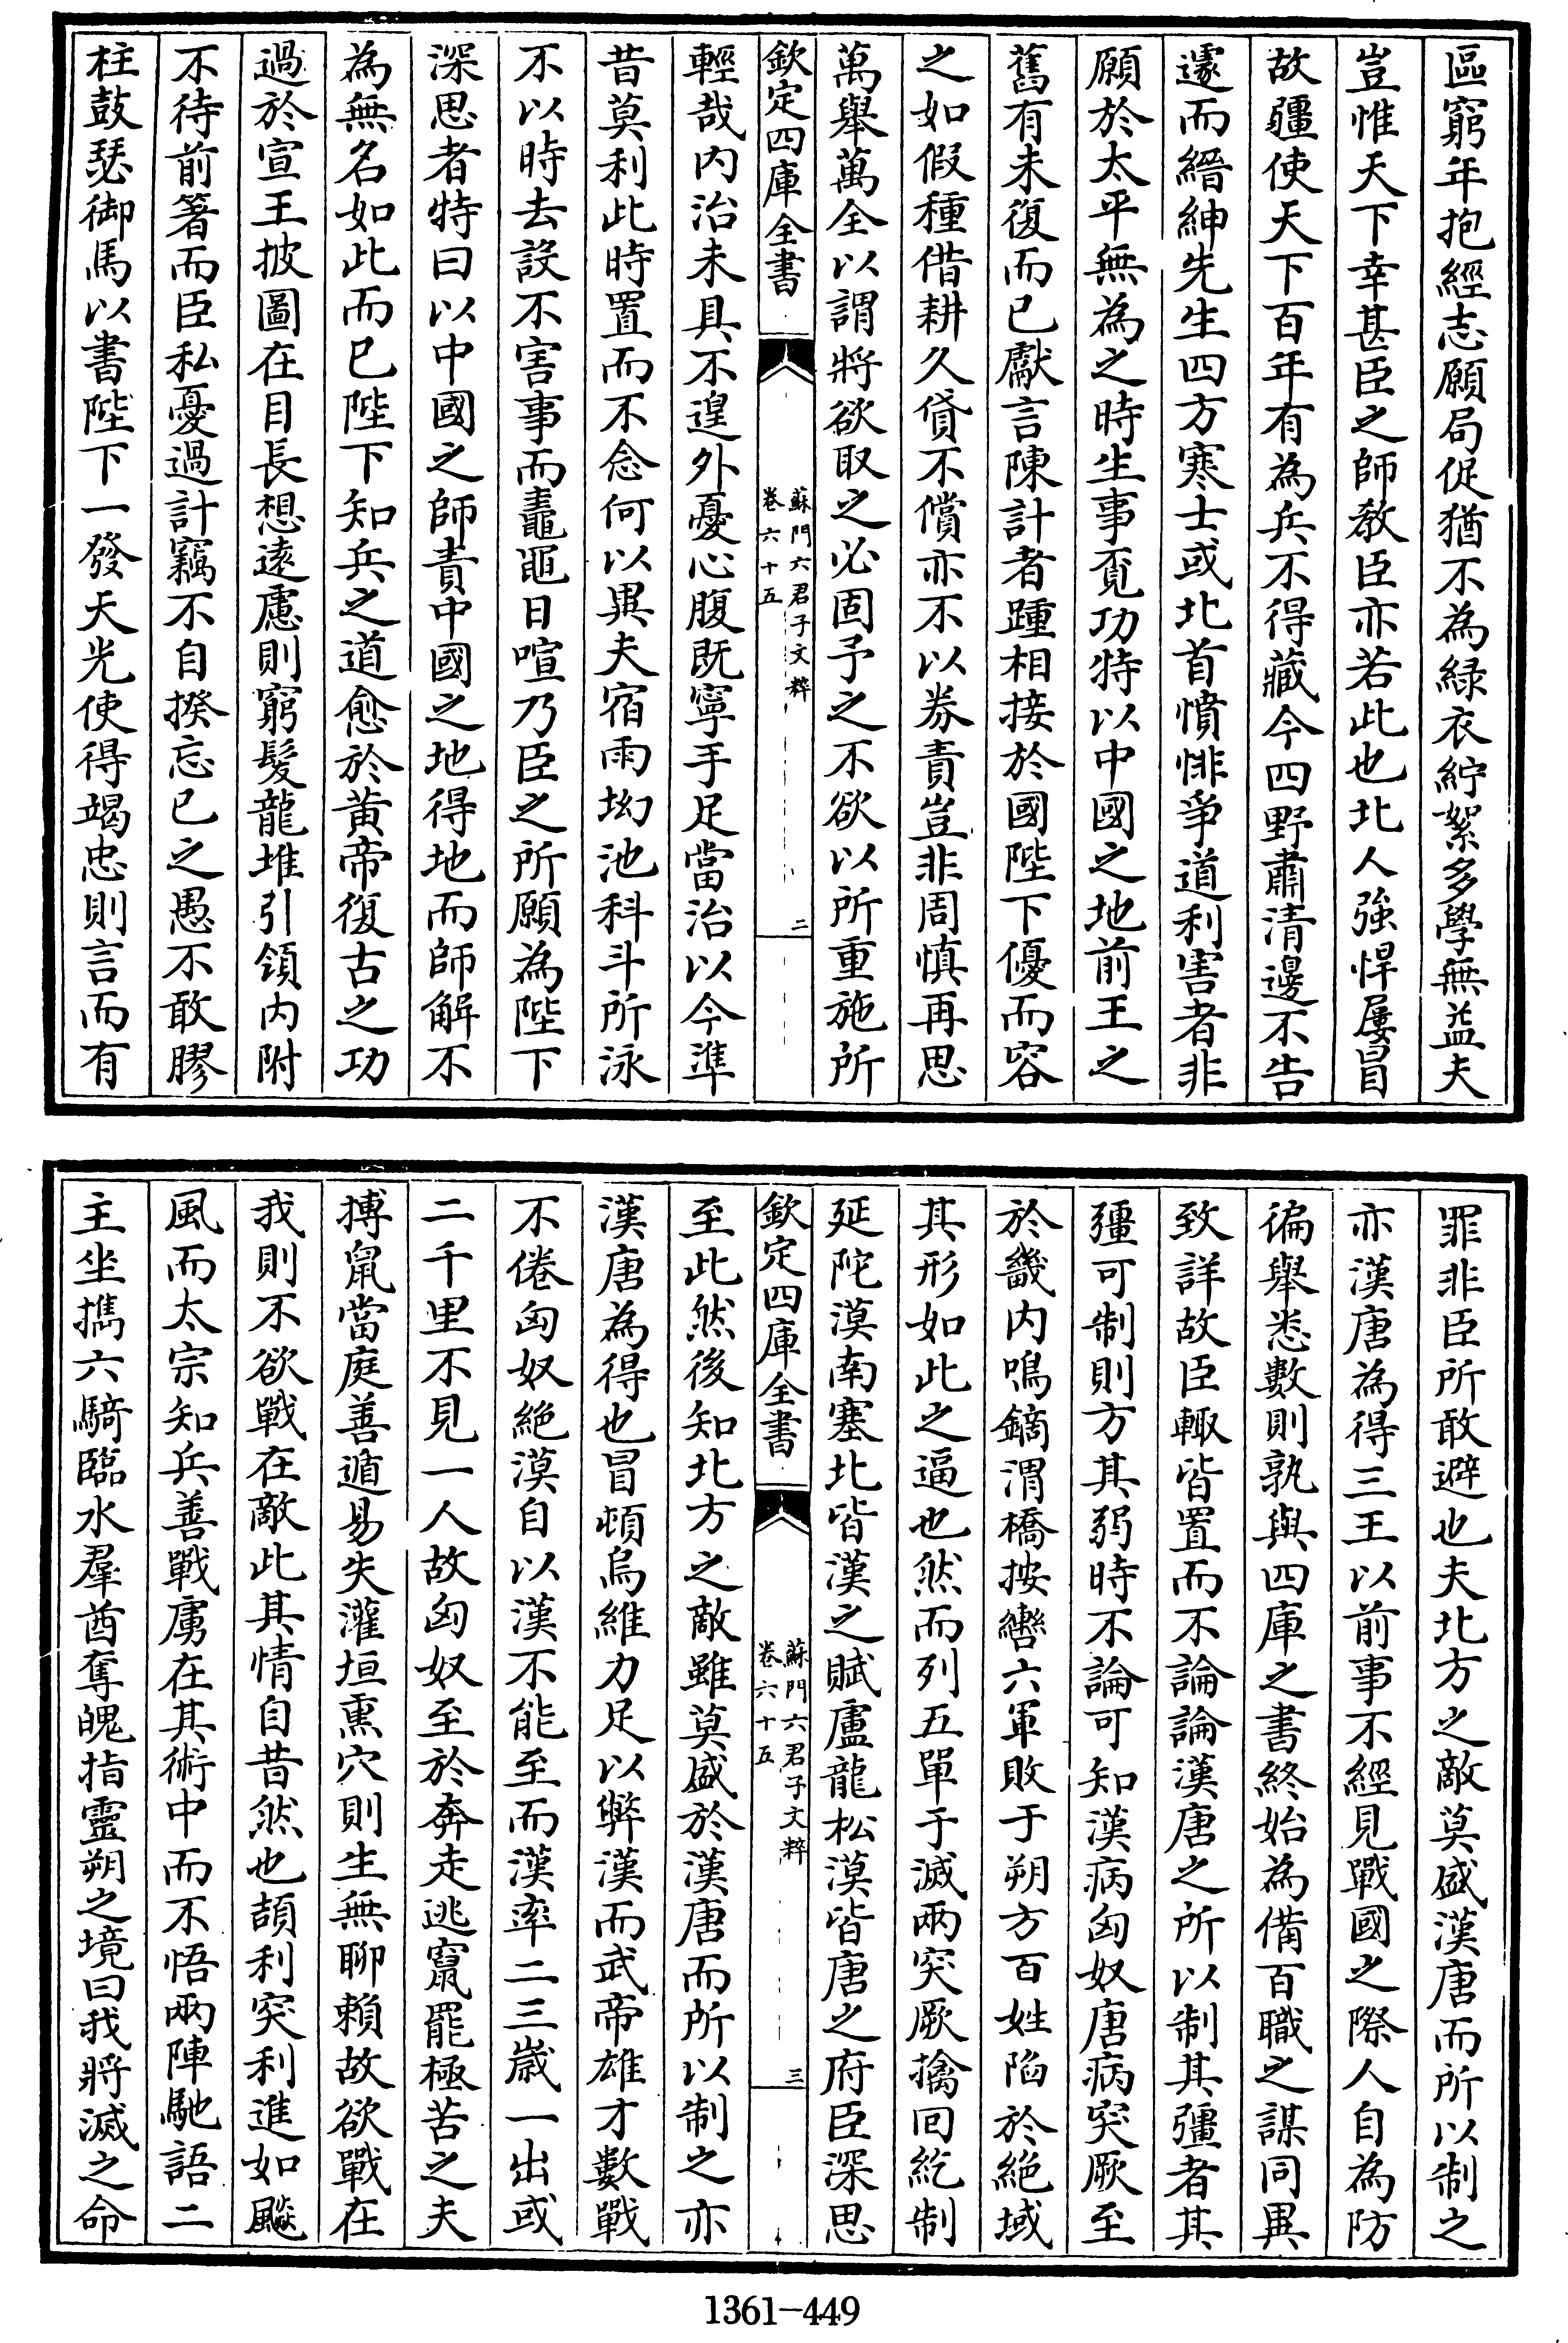 區窮年抱經志願局促猶不為緑衣紵絮多學無益夫
豈惟天下幸甚臣之師教臣亦若此也北人強悍屢冒
故疆使天下百年有為兵不得藏今四野肅清邊不告
遽而縉紳先生四方寒士或北首憤悱爭道利害者非
願於太平無為之時生事覔功特以中國之地前王之
舊有未復而已獻言陳計者踵相接於國陛下優而容
之如假種借耕久貸不償亦不以券責豈非周慎再思
萬舉萬全以謂將欲取之必固予之不欲以所重施所
欽定四庫全書
蘇門六君子文粹
卷六十五
二
輕哉内治未具不遑外憂心腹既寧手足當治以今準
昔莫利此時置而不念何以異夫宿雨坳池科斗所泳
不以時去設不害事而鼃黽日喧乃臣之所願為陛下
深思者特曰以中國之師責中國之地得地而師解不
為無名如此而已陛下知兵之道愈於黄帝復古之功
過於宣王披圖在目長想逺慮則窮髮龍堆引領内附
不待前箸而臣私憂過計竊不自揆忘已之愚不敢膠
柱鼓瑟御馬以書陛下一發天光使得竭忠則言而有
罪非臣所敢避也夫北方之敵莫盛漢唐而所以制之
亦漢唐為得三王以前事不經見戰國之際人自為防
徧舉悉數則孰與四庫之書終始為備百職之謀同異
致詳故臣輙皆置而不論論漢唐之所以制其彊者其
彊可制則方其弱時不論可知漢病匈奴唐病突厥至
於畿内鳴鏑渭橋按轡六軍敗于朔方百姓陷於絶域
其形如此之逼也然而列五單于滅兩突厥擒回紇制
延陀漠南塞北皆漢之賦盧龍松漠皆唐之府臣深思
欽定四庫全書
蘇門六君子文粹
卷六十五
三
至此然後知北方之敵雖莫盛於漢唐而所以制之亦
漢唐為得也冒頓烏維力足以弊漢而武帝雄才數戰
不倦匈奴絶漠自以漢不能至而漢率二三嵗一出或
二千里不見一人故匈奴至於奔走逃竄罷極苦之夫
搏鼠當庭善遁易失灌垣熏穴則生無聊賴故欲戰在
我則不欲戰在敵此其情自昔然也頡利突利進如飈
風而太宗知兵善戰虜在其術中而不悟兩陣馳語二
主坐擕六騎臨水羣酋奪魄指靈朔之境曰我將滅之命